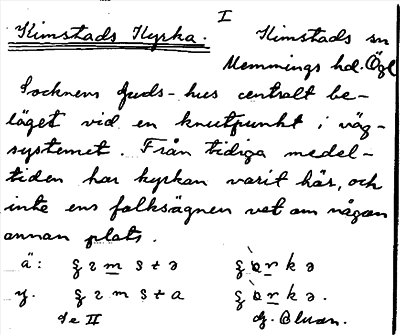 I
Kimstads Kyrka. Kimstads sn
Memmings hd. Ögl
Socknens Guds-hus centralt be-
läget vid en knutpunkt i väg-
systemet. Från tidiga medel-
tiden har kyrkan varit här, och
inte ens folksägnen vet om någon
annan plats.
ä:
y.